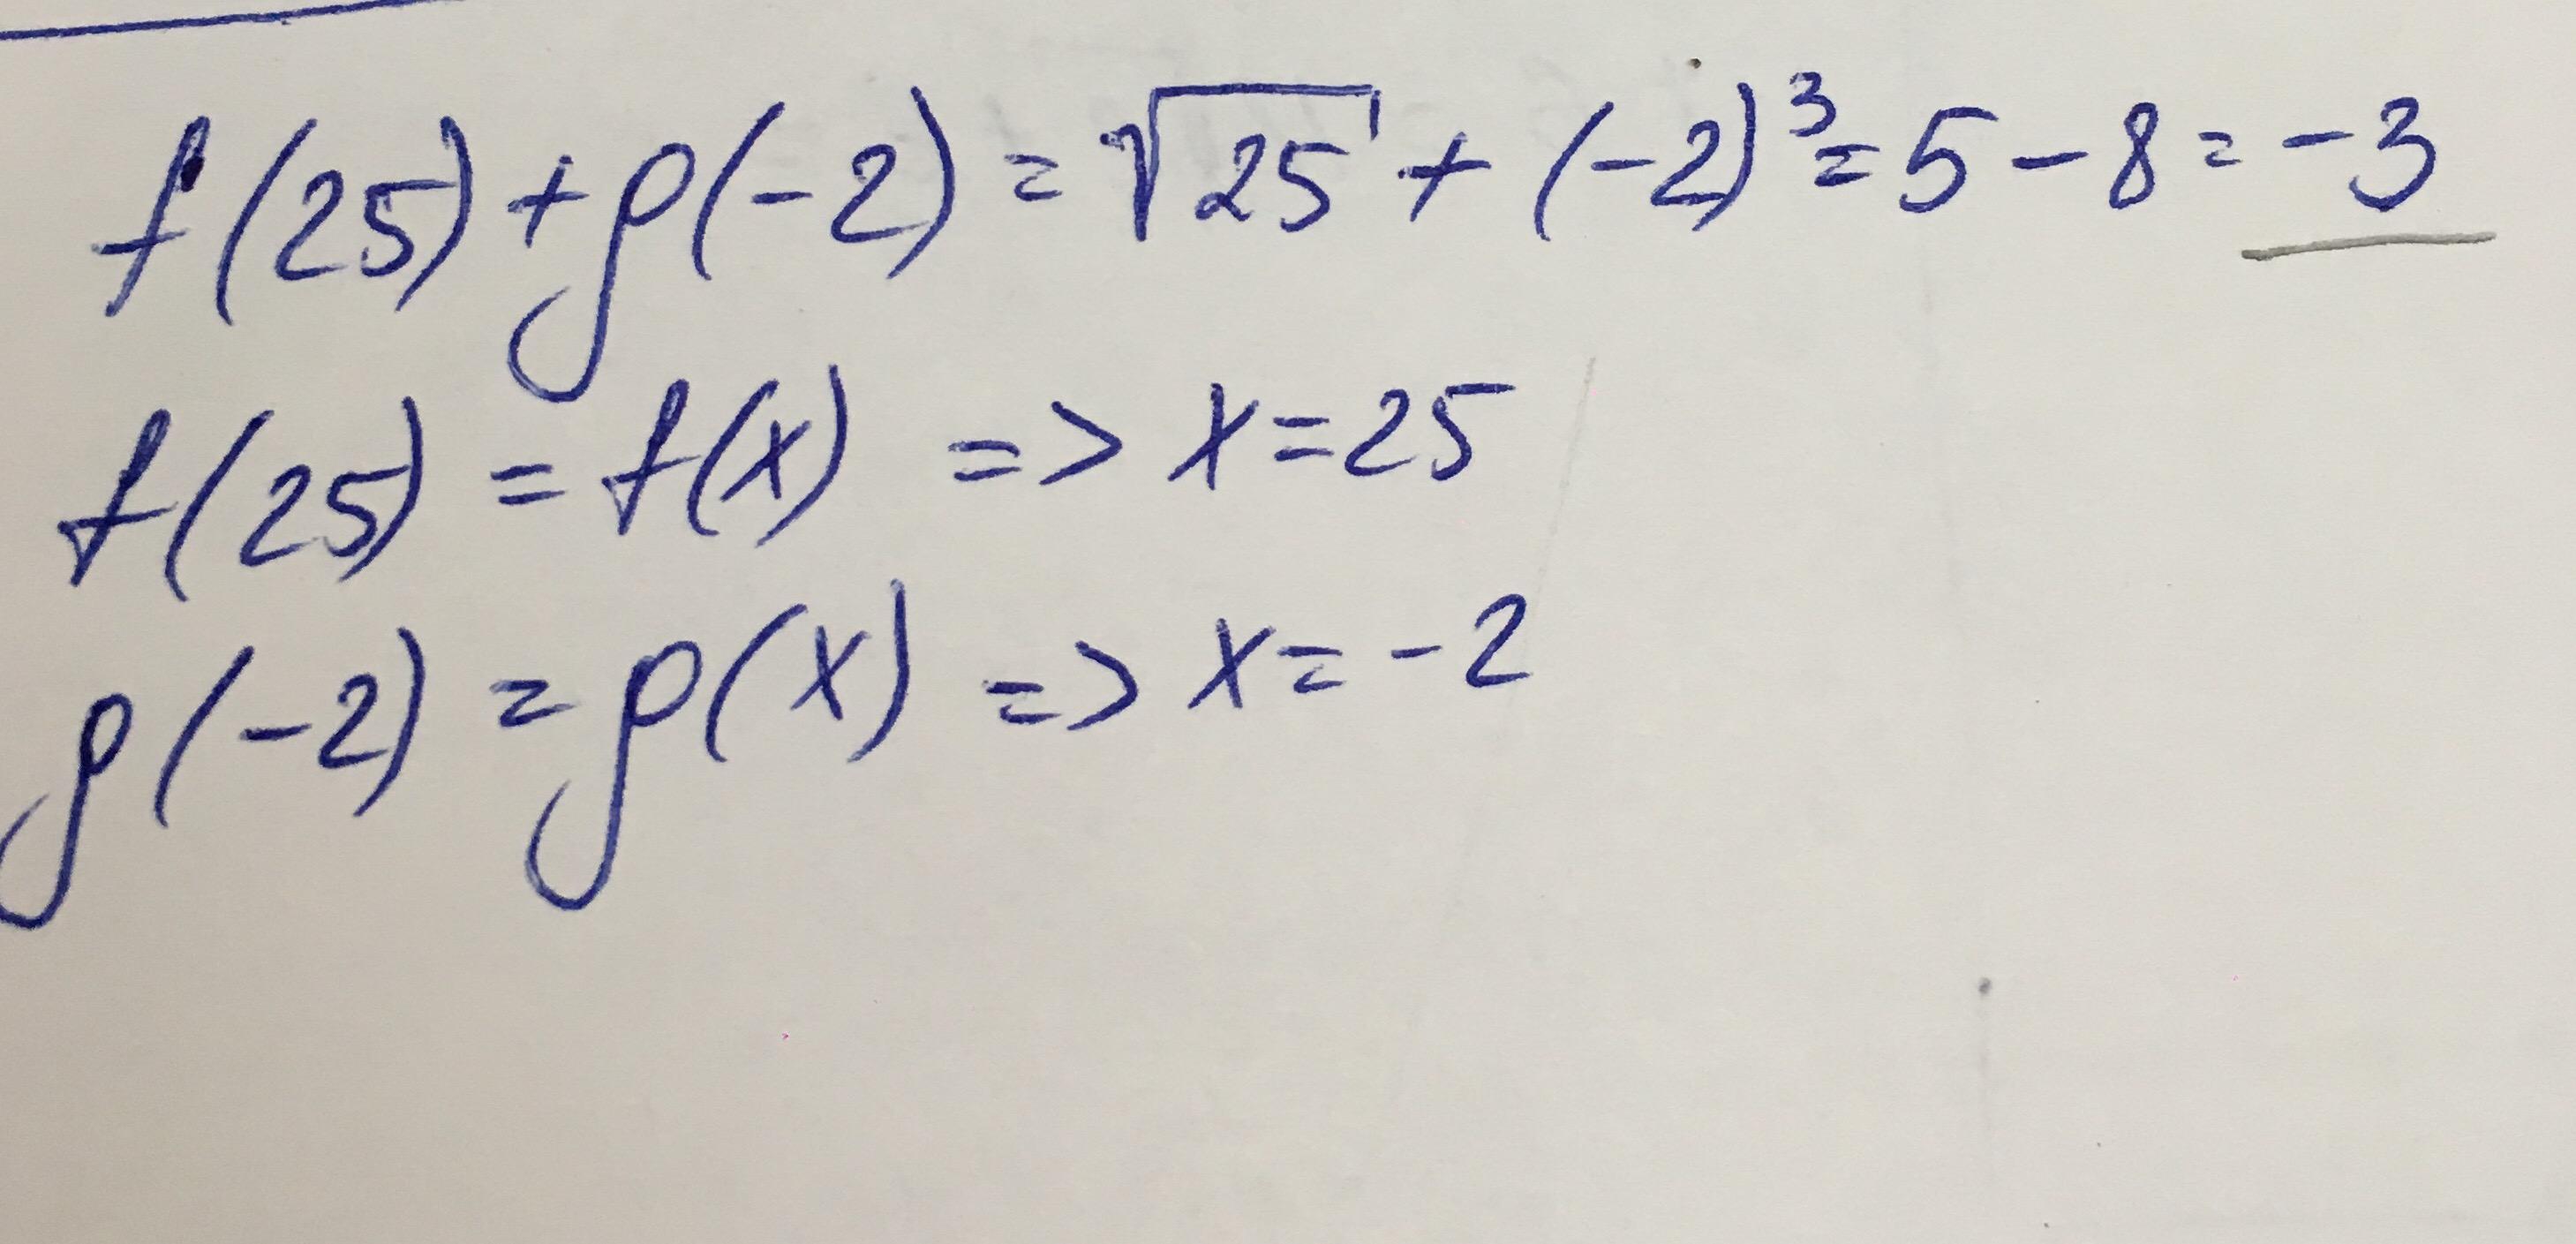 f(25)+p(-2)=√25+(-2)³=5-8=-3
f(25)=f(x) => x=25
p(-2)=p(x) => x=-2